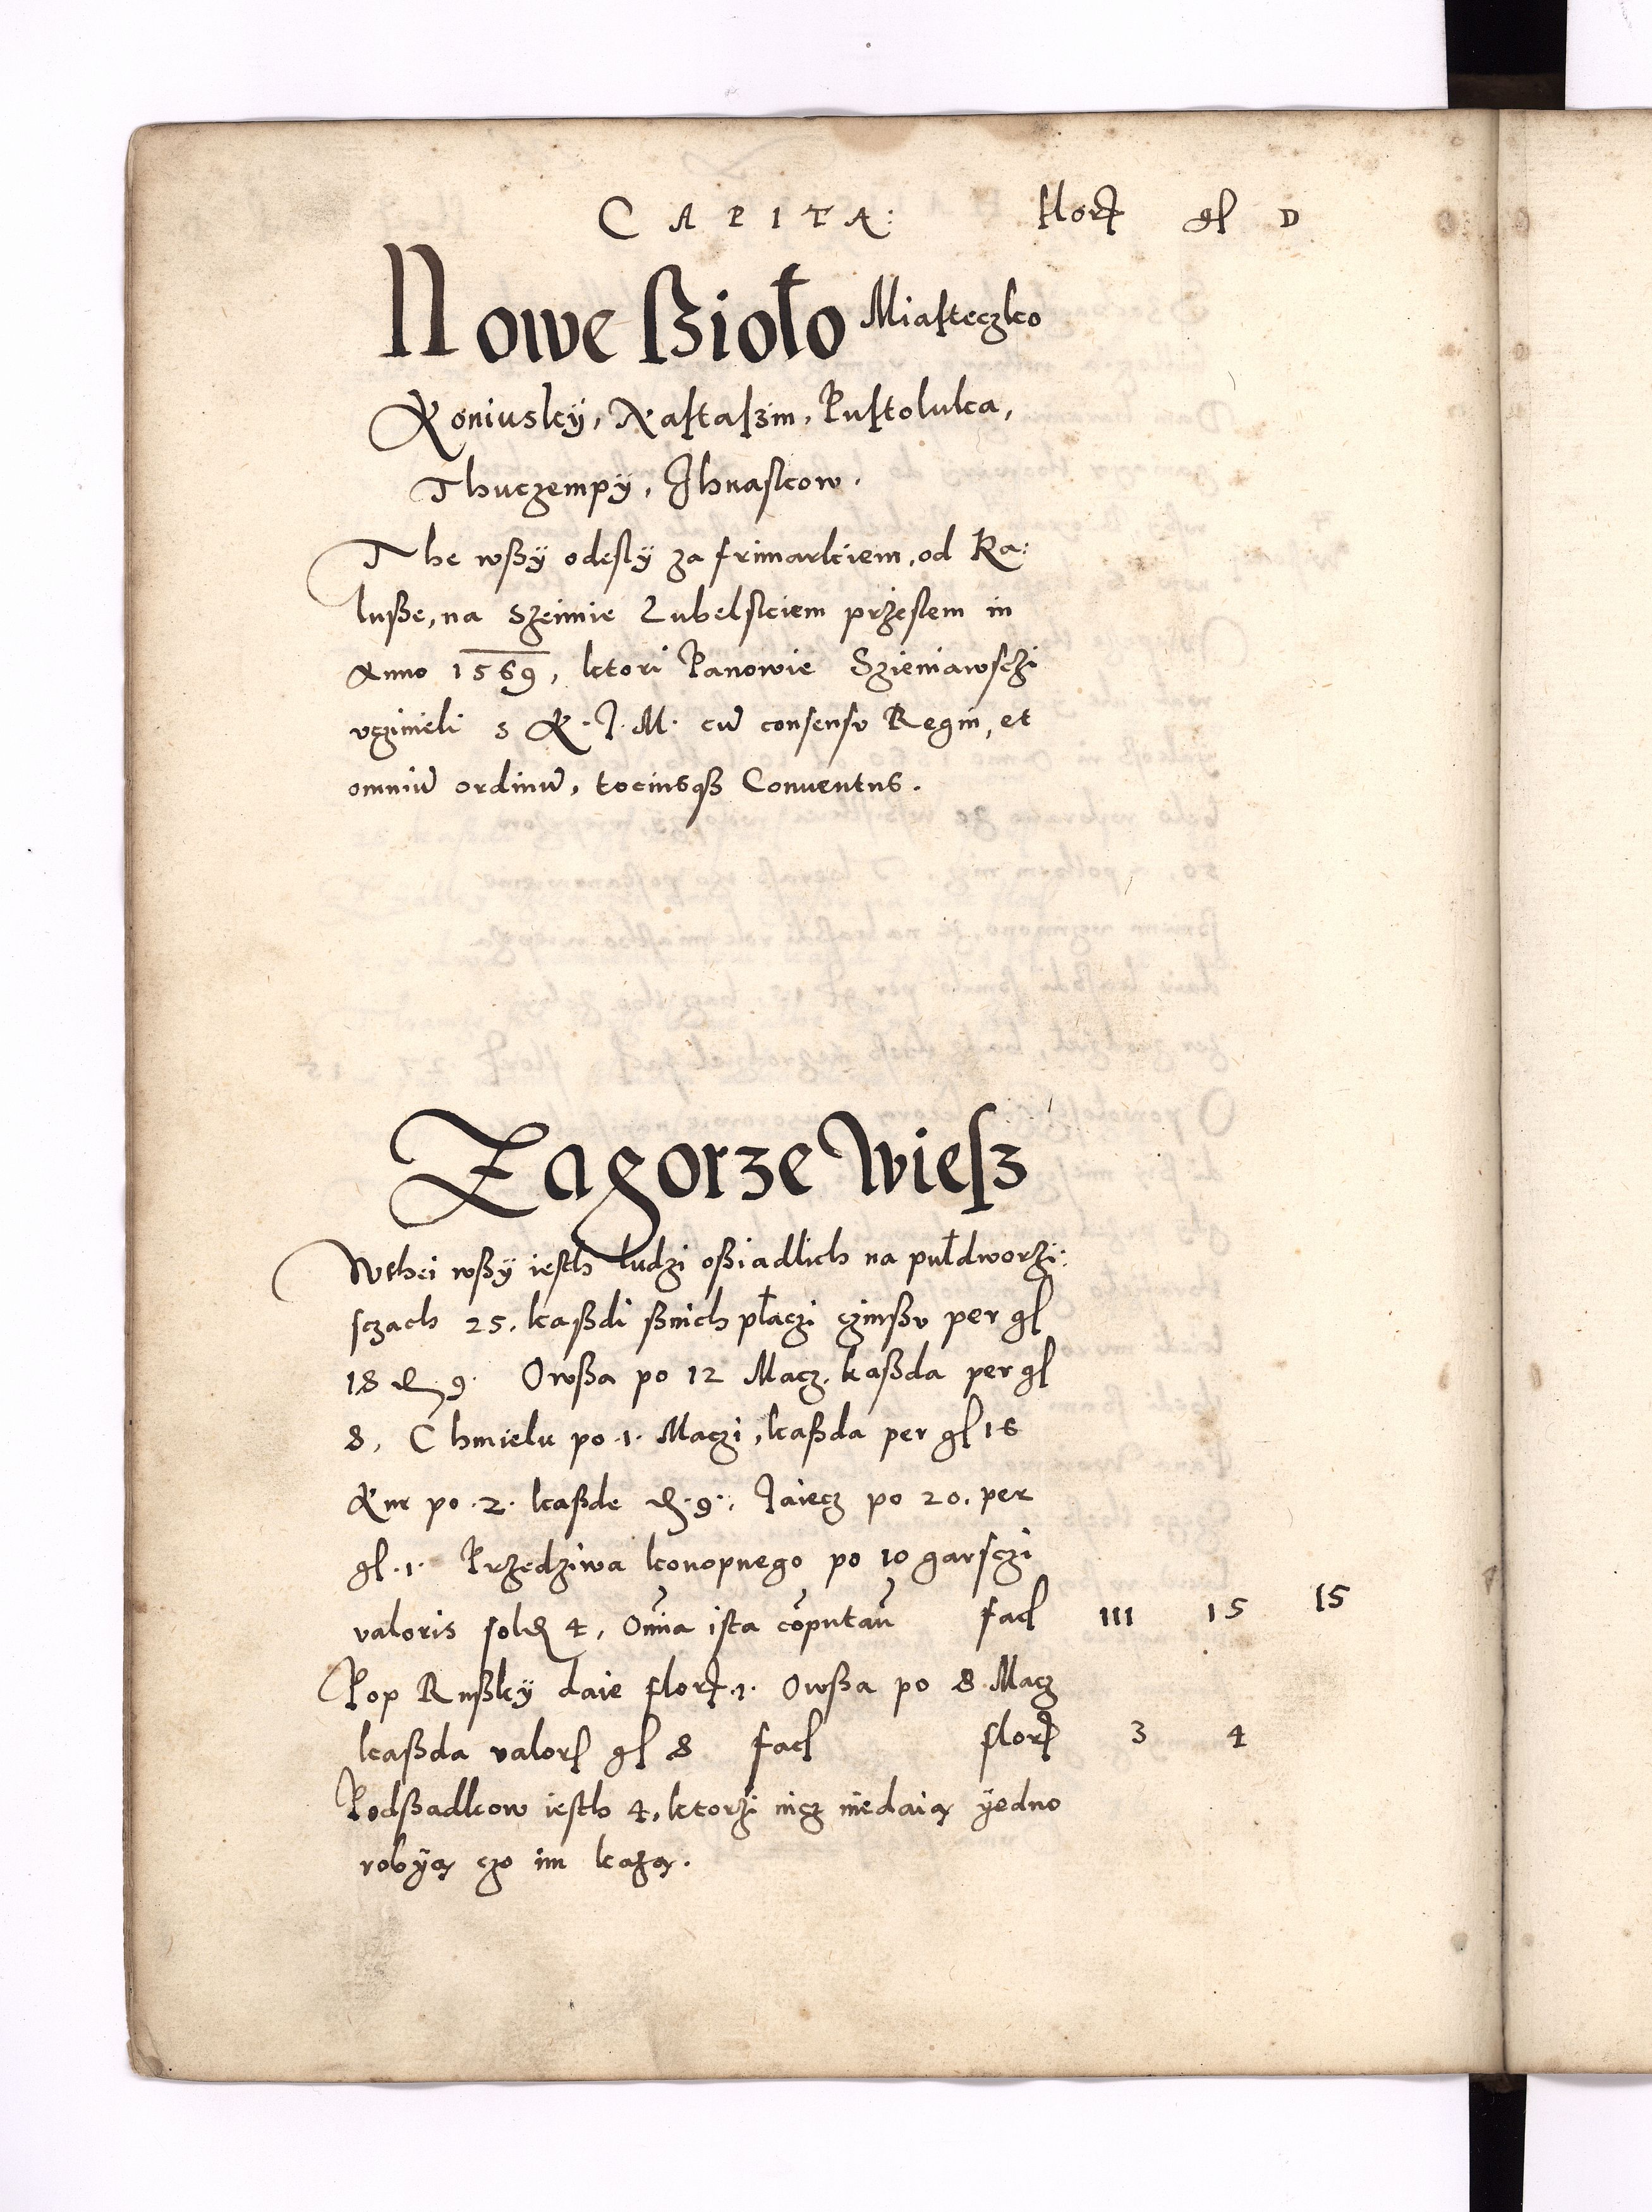 CAPITA: flor gl D
Nowe ßioło Miasteczko
Koniusky, Nastaszin, Pustoluka,
Thuczempy, Ihnaskow.
The wßÿ odesly za frimarkiem, od Ka:
luße, na Szeimie Lubelskiem przeslem in
Anno 1569, ktori Panowie Szieniawsczi
vczinieli s K. J. M. cū consensv Regni, et
omniū ordinū, tociusqß Conuentus.
Zagorze Wiesz
Wthei wßÿ iesth ludzi oßiadlich na pułdworzi:
sczach 25. kaßdi ßnich płaczi czinßv per gl
18 d 9. Owßa po 12 Macz. kaßda per gl
8, Chmielu po .1. Maczi, kaßda per gl 16
Kur po .2. kaßde d .9., Jaiecz po 20. per
gl .1. Przedziwa konopnego po 10 garsczi
valoris sold 4, Omīa ista cōputaū facl 111 15 15
Pop Rußky daie flor .1. Owßa po 8 Macz
kaßda valorl gl 8 facl flor 3 4
Podßadkow iesth 4, ktorzi nicz niedaią ÿedno
robÿą czo im każą.